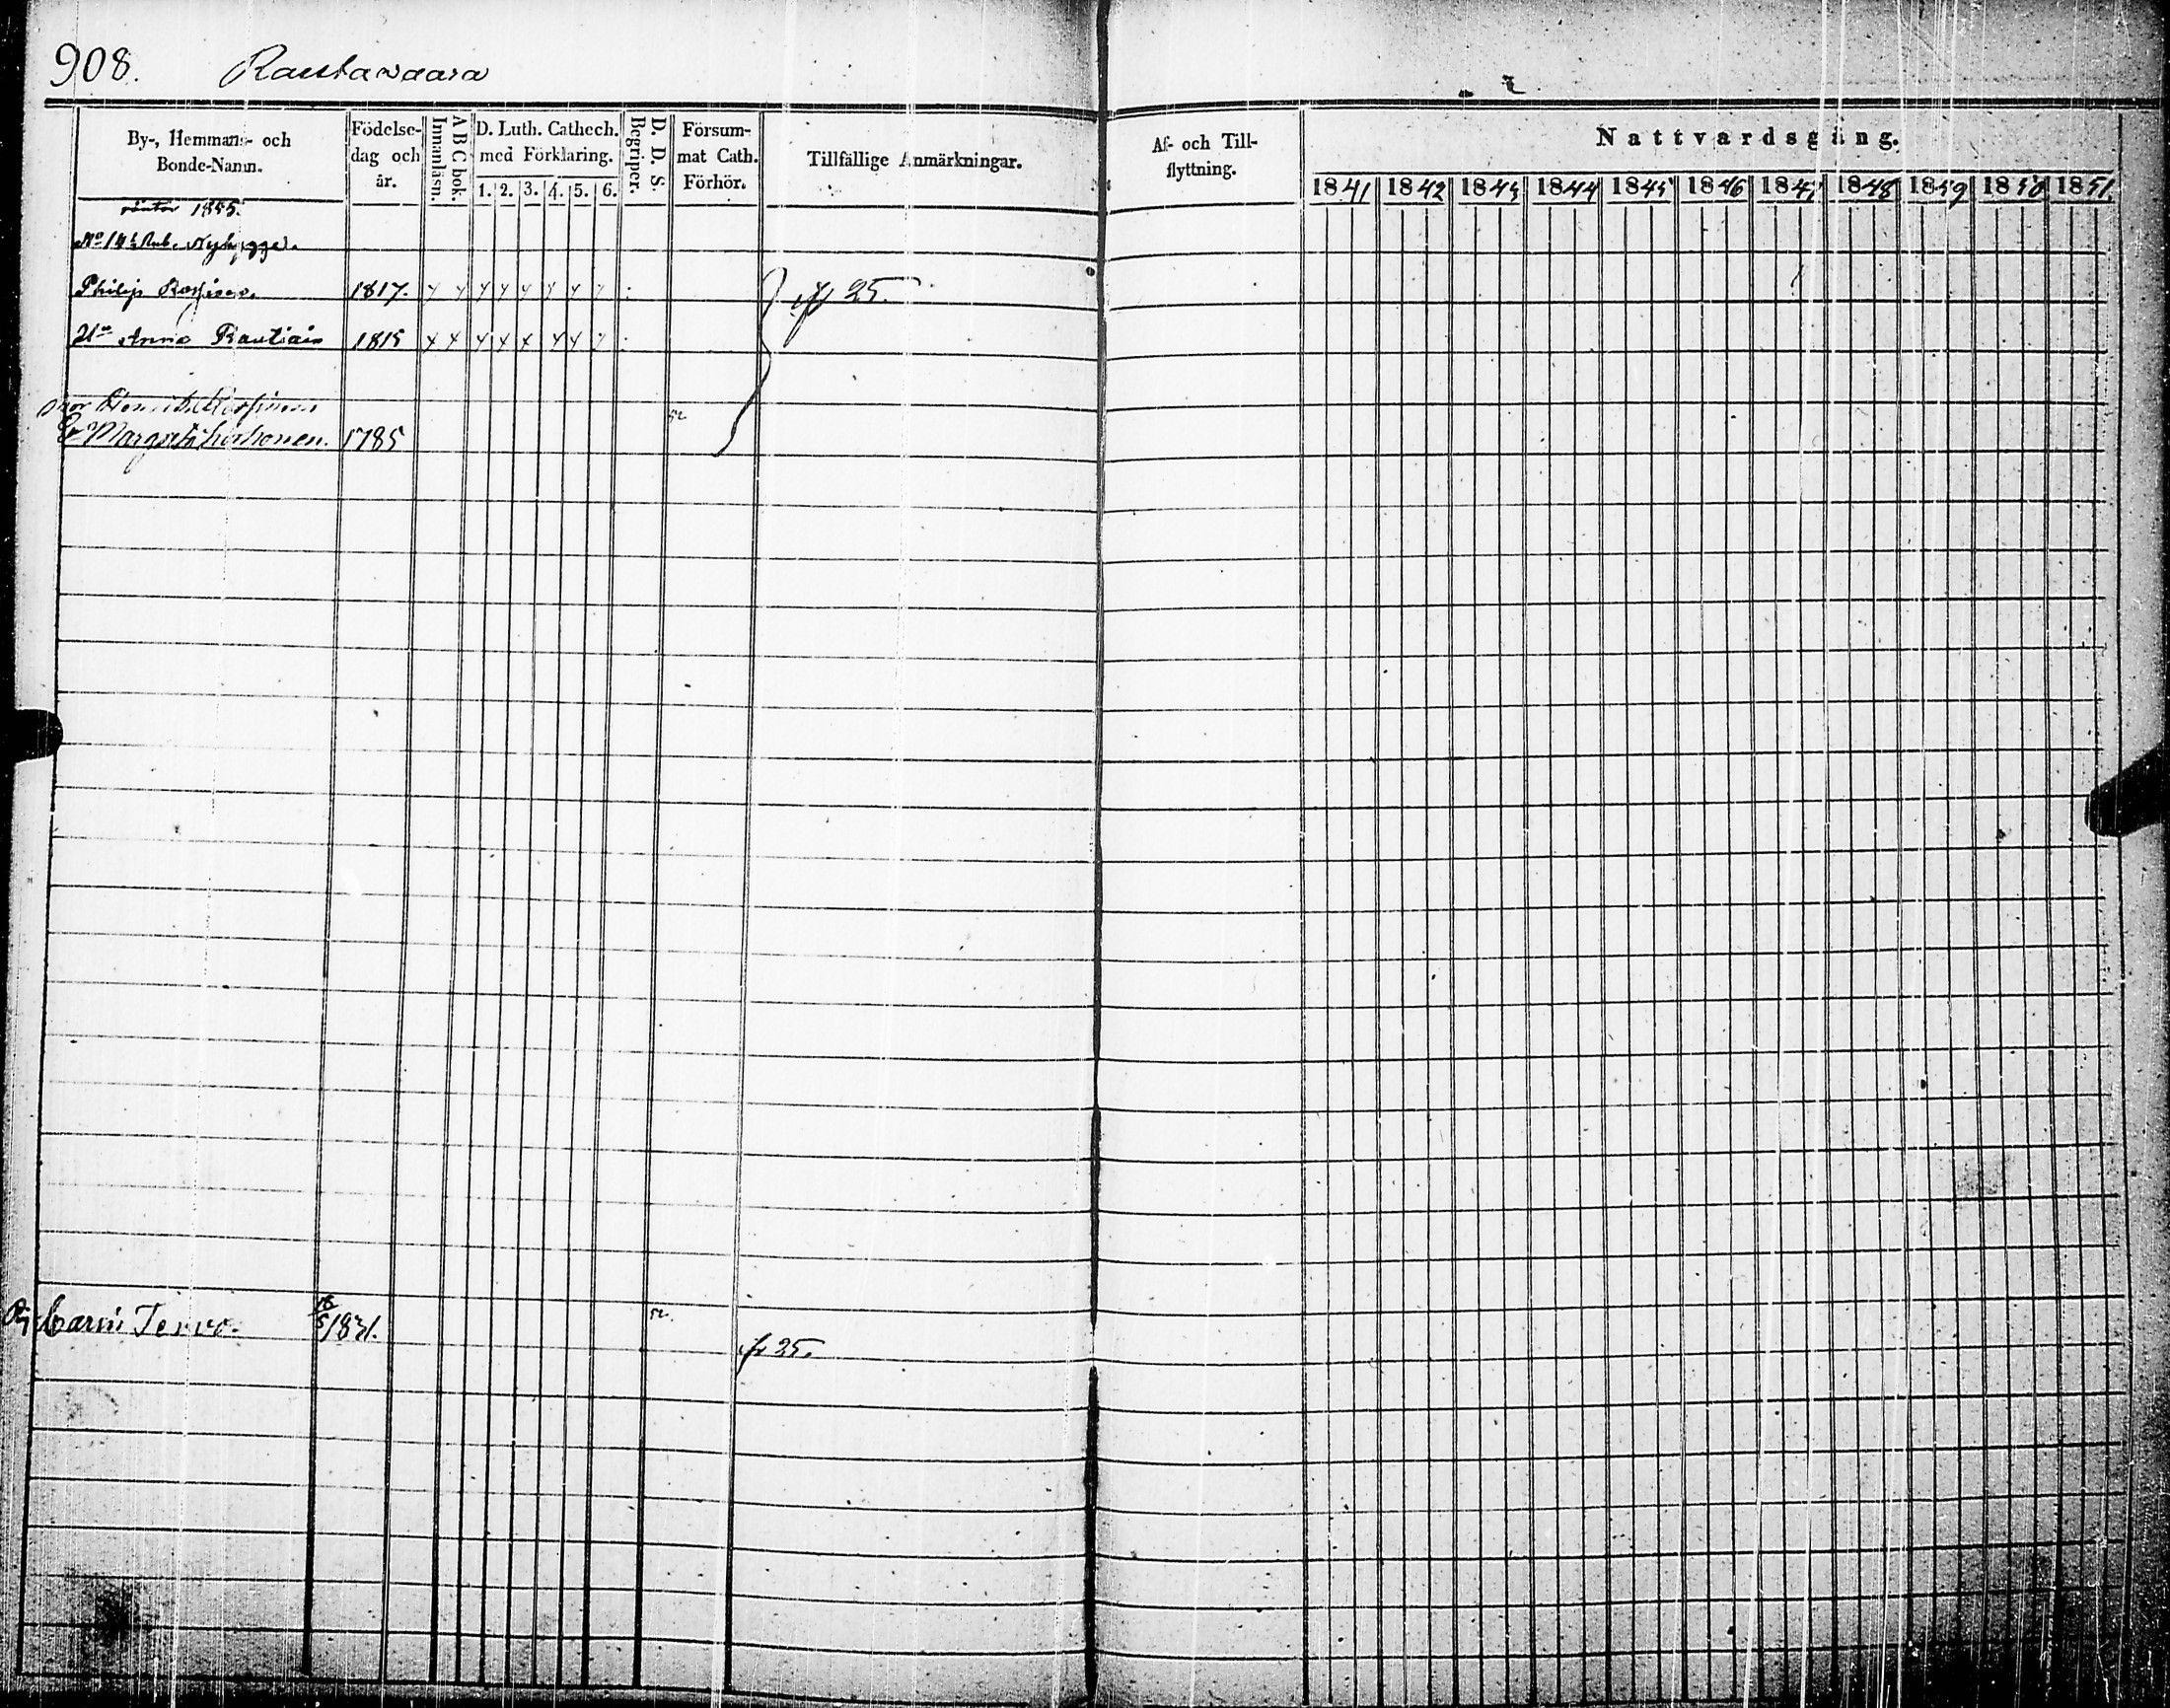 908. Rautavaara
By-, Hemmans- och Bonde-Namn.
Födelse-dag och år.
Innanläsn.
A B C bok.
D. Luth. Cathech. med Förklaring.
1. 2. 3. 4. 5. 6.
Begriper.
D. D. S.
Försum-mat Cath. Förhör.
Tillfällige Anmärkningar.
Af- och Till-flyttning.
Nattvardsgång.
1841 1842 1843 1844 1845 1846 1847 1848 1849 1850 1851
1855.
Nybygge.
Philip 1817. 25.
Hu Anna Rautiain 1815
Mor
E Margreta 1785 52
Pig Carin Tervo. 18/5 1831. 52.
fr 25.